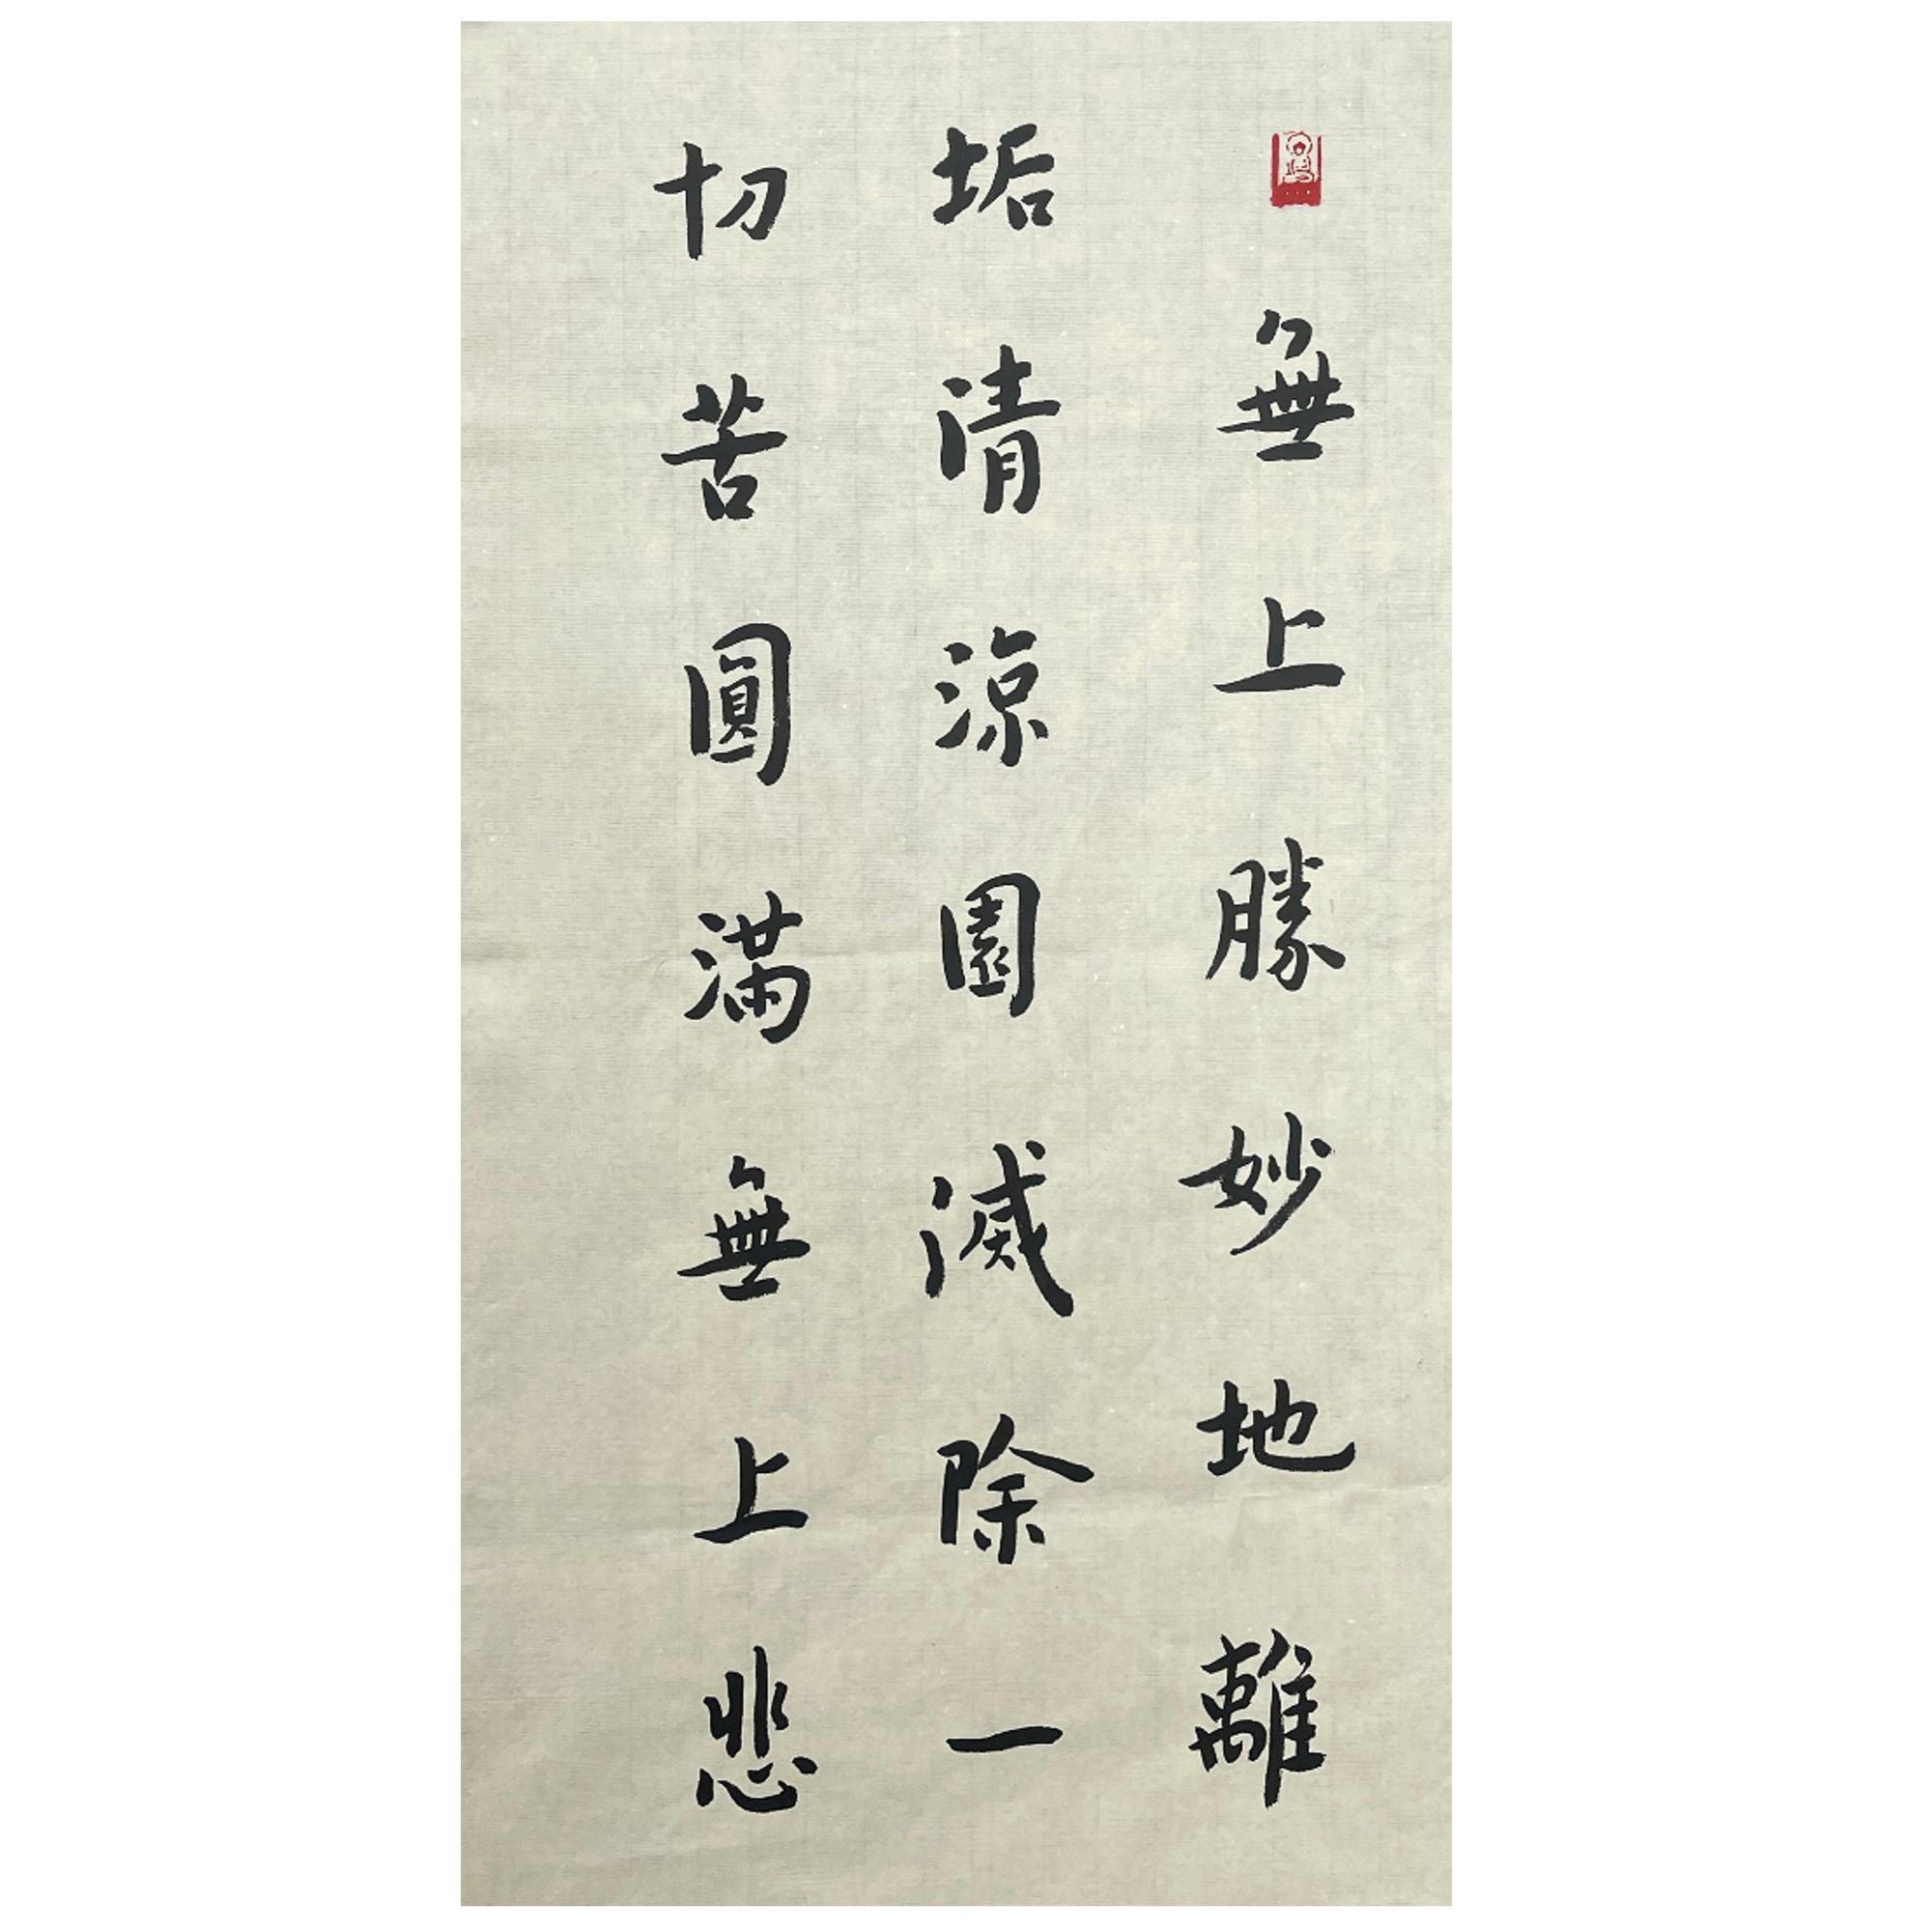 無上勝妙地離
垢清涼園滅除一
切苦圓滿無上悲